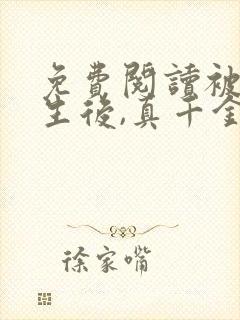 免費閱讀被
生後,真千金
徐家嘴